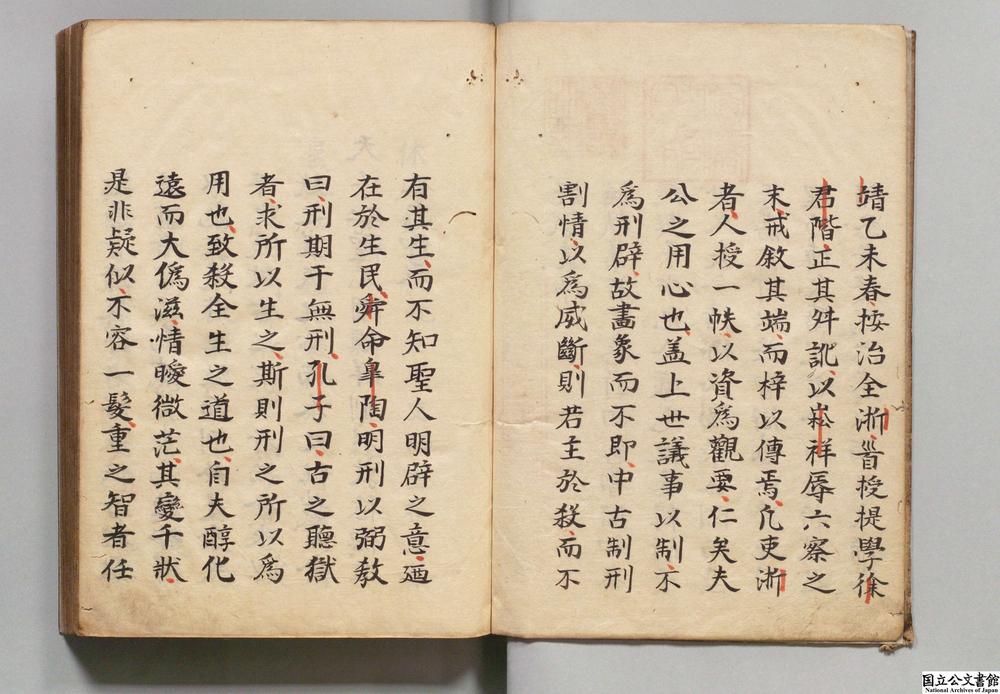 靖乙未春按治全浙首授提學徐
君階正其舛訛以崧祥辱六察之
末戒敘其端而梓以傳焉凢吏浙
者人授一帙以資爲觀要仁矣夫
公之用心也盖上世議事以制不
爲刑辟故畫象而不即中古制刑
割情以爲威斷則若主於殺而不
有其生而不知聖人明辟之意廼
在於生民舜命臯陶明刑以弼敎
曰刑期于無刑孔子曰古之聽獄
者求所以生之斯則刑之所以爲
用也致殺全生之道也自夫醇化
遠而大僞滋情曖微茫其變千狀
是非疑似不容一髮重之智者任
国立公文書館
National Archives of Japan